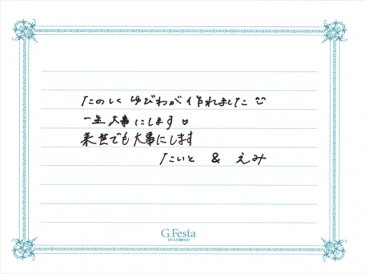 たのしくゆびわが作れました☺
一生大事にします♡
来世でも大事にします
たいと & えみ
G.Festa
DIAMOND